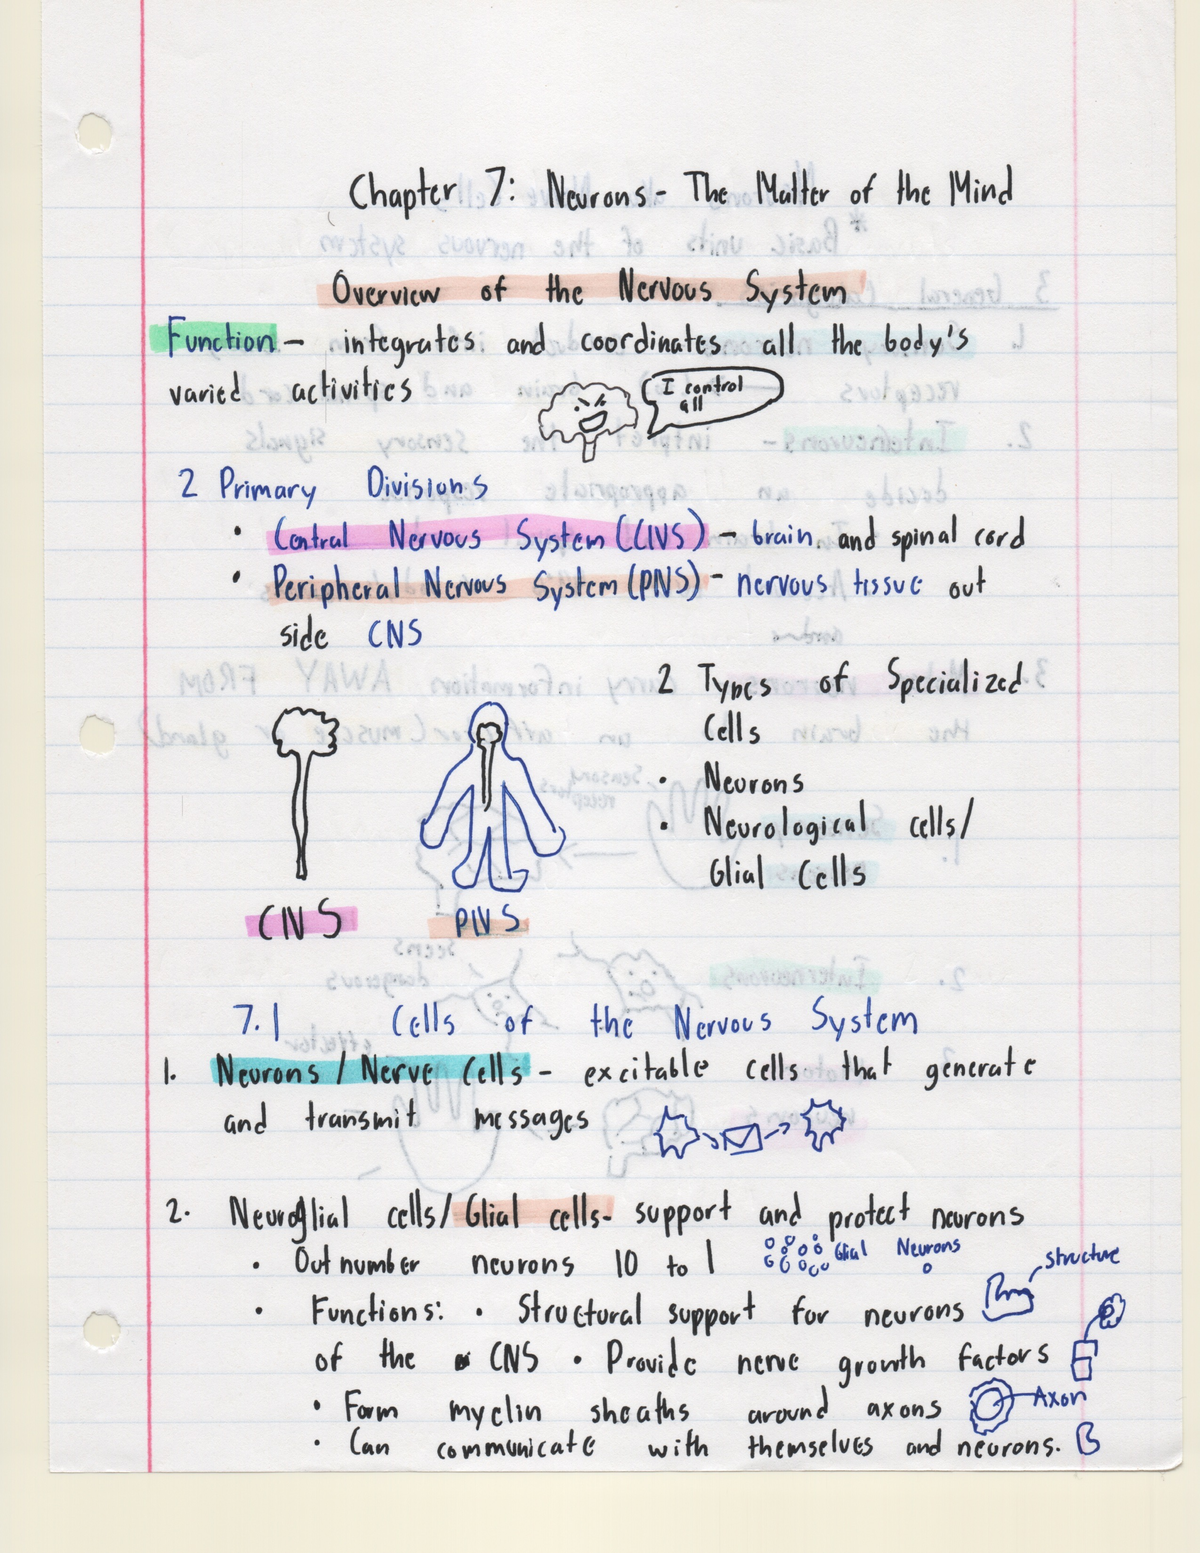 Chapter 7: Neurons - The Matter of the Mind
Overview of the Nervous System
Function - integrates and coordinates all the body's
varied activities
I control
all
2 Primary Divisions
• Central Nervous System (CNS) - brain and spinal cord
• Peripheral Nervous System (PNS) - nervous tissue out
side CNS
2 Types of Specialized
Cells
• Neurons
• Neurological cells/
Glial Cells
CNS
PNS
7.1 Cells of the Nervous System
1. Neurons / Nerve Cells - excitable cells that generate
and transmit messages
2. Neuroglial cells/Glial cells - support and protect neurons
• Outnumber neurons 10 to 1
Glial Neurons
structure
• Functions: • Structural support for neurons
of the CNS • Provide nerve growth factors
• Form myelin sheaths around axons
Axon
• Can communicate with themselves and neurons.